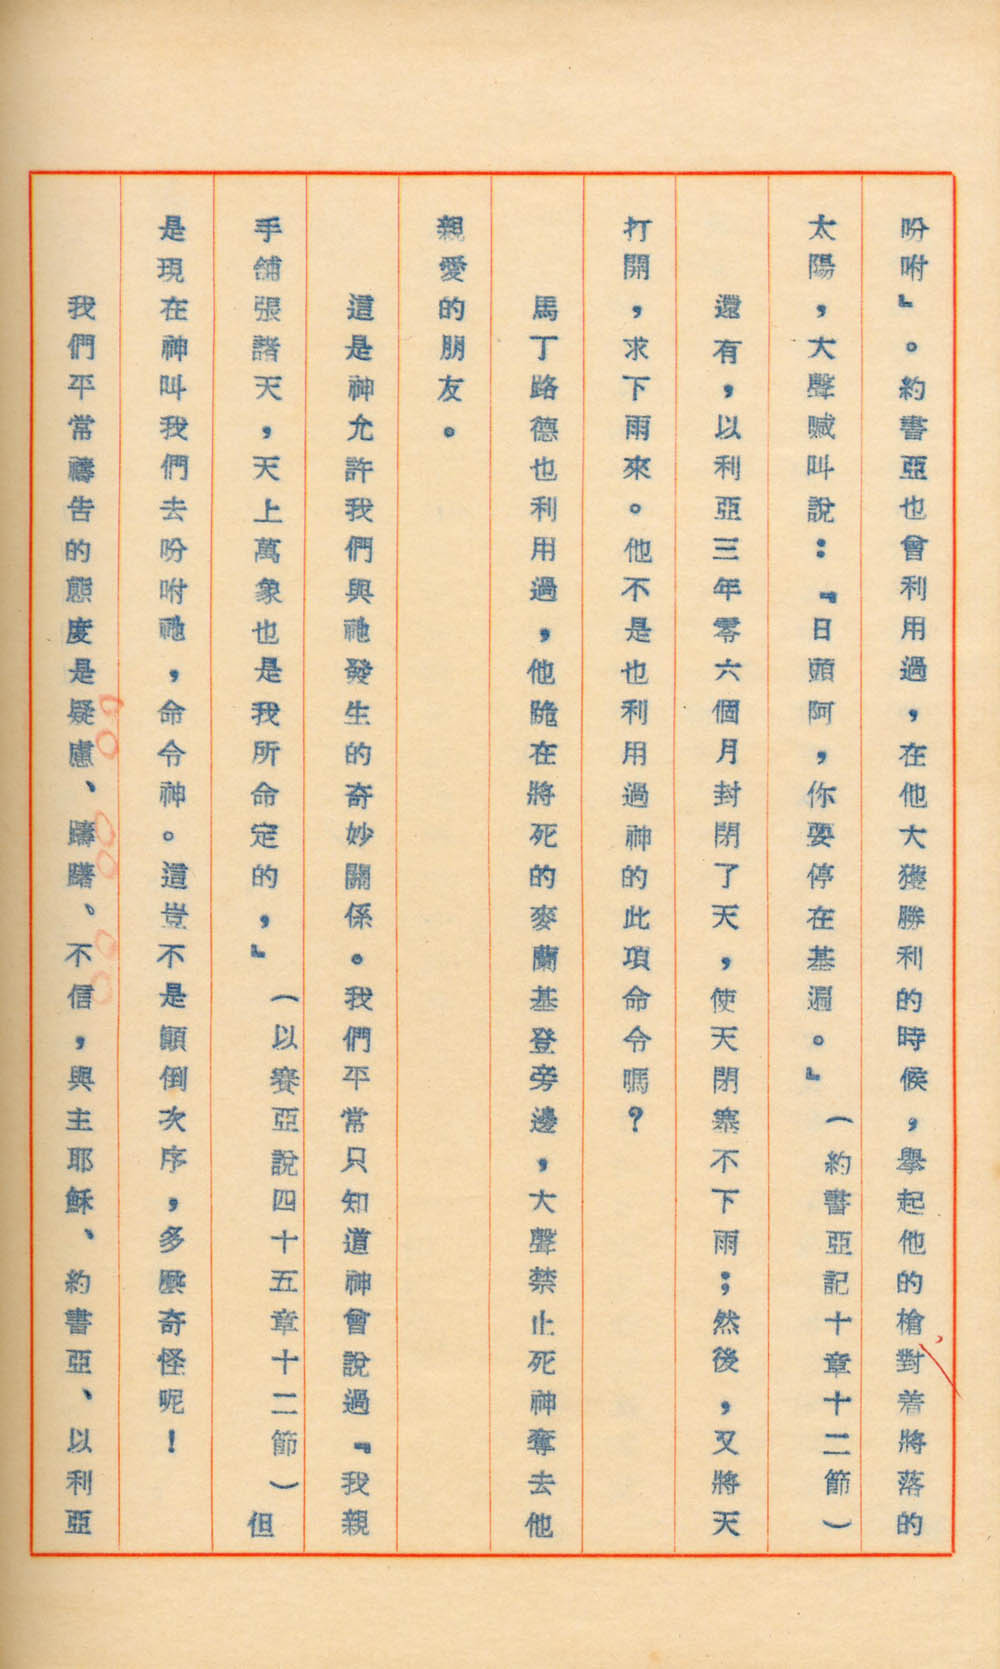 吩咐』。約書亞也曾利用過，在他大獲勝利的時候，舉起他的槍對着將落的
太陽，大聲喊叫說：『日頭阿，你要停在基遍。』（約書亞記十章十二節）
還有，以利亞三年零六個月封閉了天，使天閉塞不下雨；然後，又將天
打開，求下雨來。他不是也利用過神的此項命令嗎？
馬丁路德也利用過，他跪在將死的麥蘭基登旁邊，大聲禁止死神奪去他
親愛的朋友。
這是神允許我們與祂發生的奇妙關係。我們平常只知道神曾說過『我親
手舖張諸天，天上萬象也是我所命定的，』（以賽亞說四十五章十二節）但
是現在神叫我們去吩咐祂，命令神。這豈不是顚倒次序，多麼奇怪呢！
我們平常禱告的態度是疑慮、躊躇、不信，與主耶穌、約書亞、以利亞